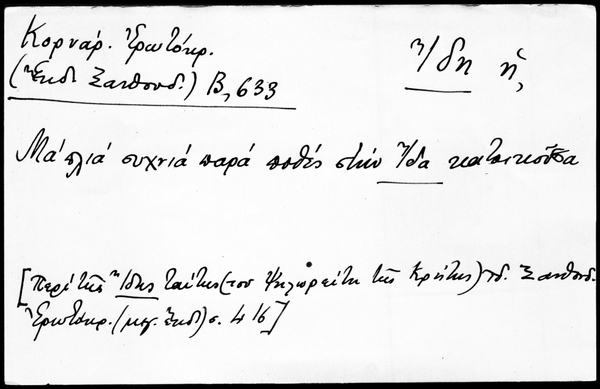 Κορνάρ. Ἐρωτόκρ.
(Ἔκδ. Ξανθουδ.) Β, 633
Ἴδη ἡ,
Μά πλιά συχνιά παρά ποθές στήν Ἴδα κατοικοῦσα
[Περί τῆς Ἴδης ταύτης (του Ψηλορείτη τῆς Κρήτης) Ξανθουδ.
Ἐρωτόκρ. (μεγ. Ἔκδ.) σ. 416]